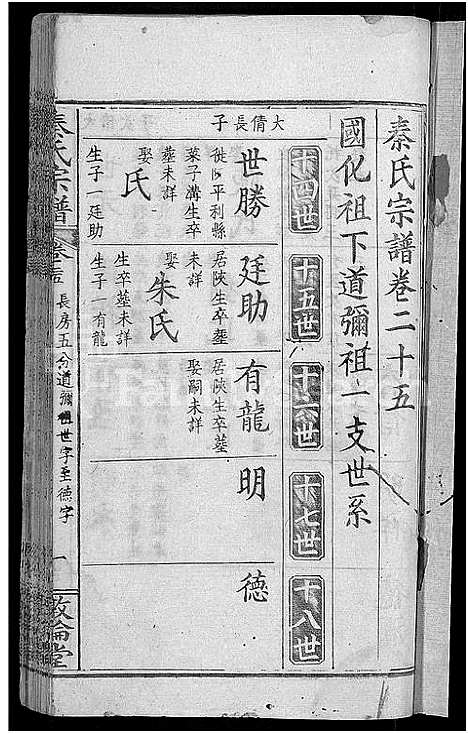 秦氏宗譜卷二十五
國化祖下道彌祖一支世系
十四世
十五世
十六世
十七世
十八世
大倩長子
世勝
徙名平利縣
菜子溝生卒
塟未詳
娶
氏
生子一廷助
廷助
居陝生卒塟
未詳
娶朱氏
生卒墓未詳
生子一有龍
有龍
居陝生卒墓
娶嗣未詳
明
德
秦氏宗譜
卷二十五
長房五分道彌祖世字至德字
一
敦倫堂